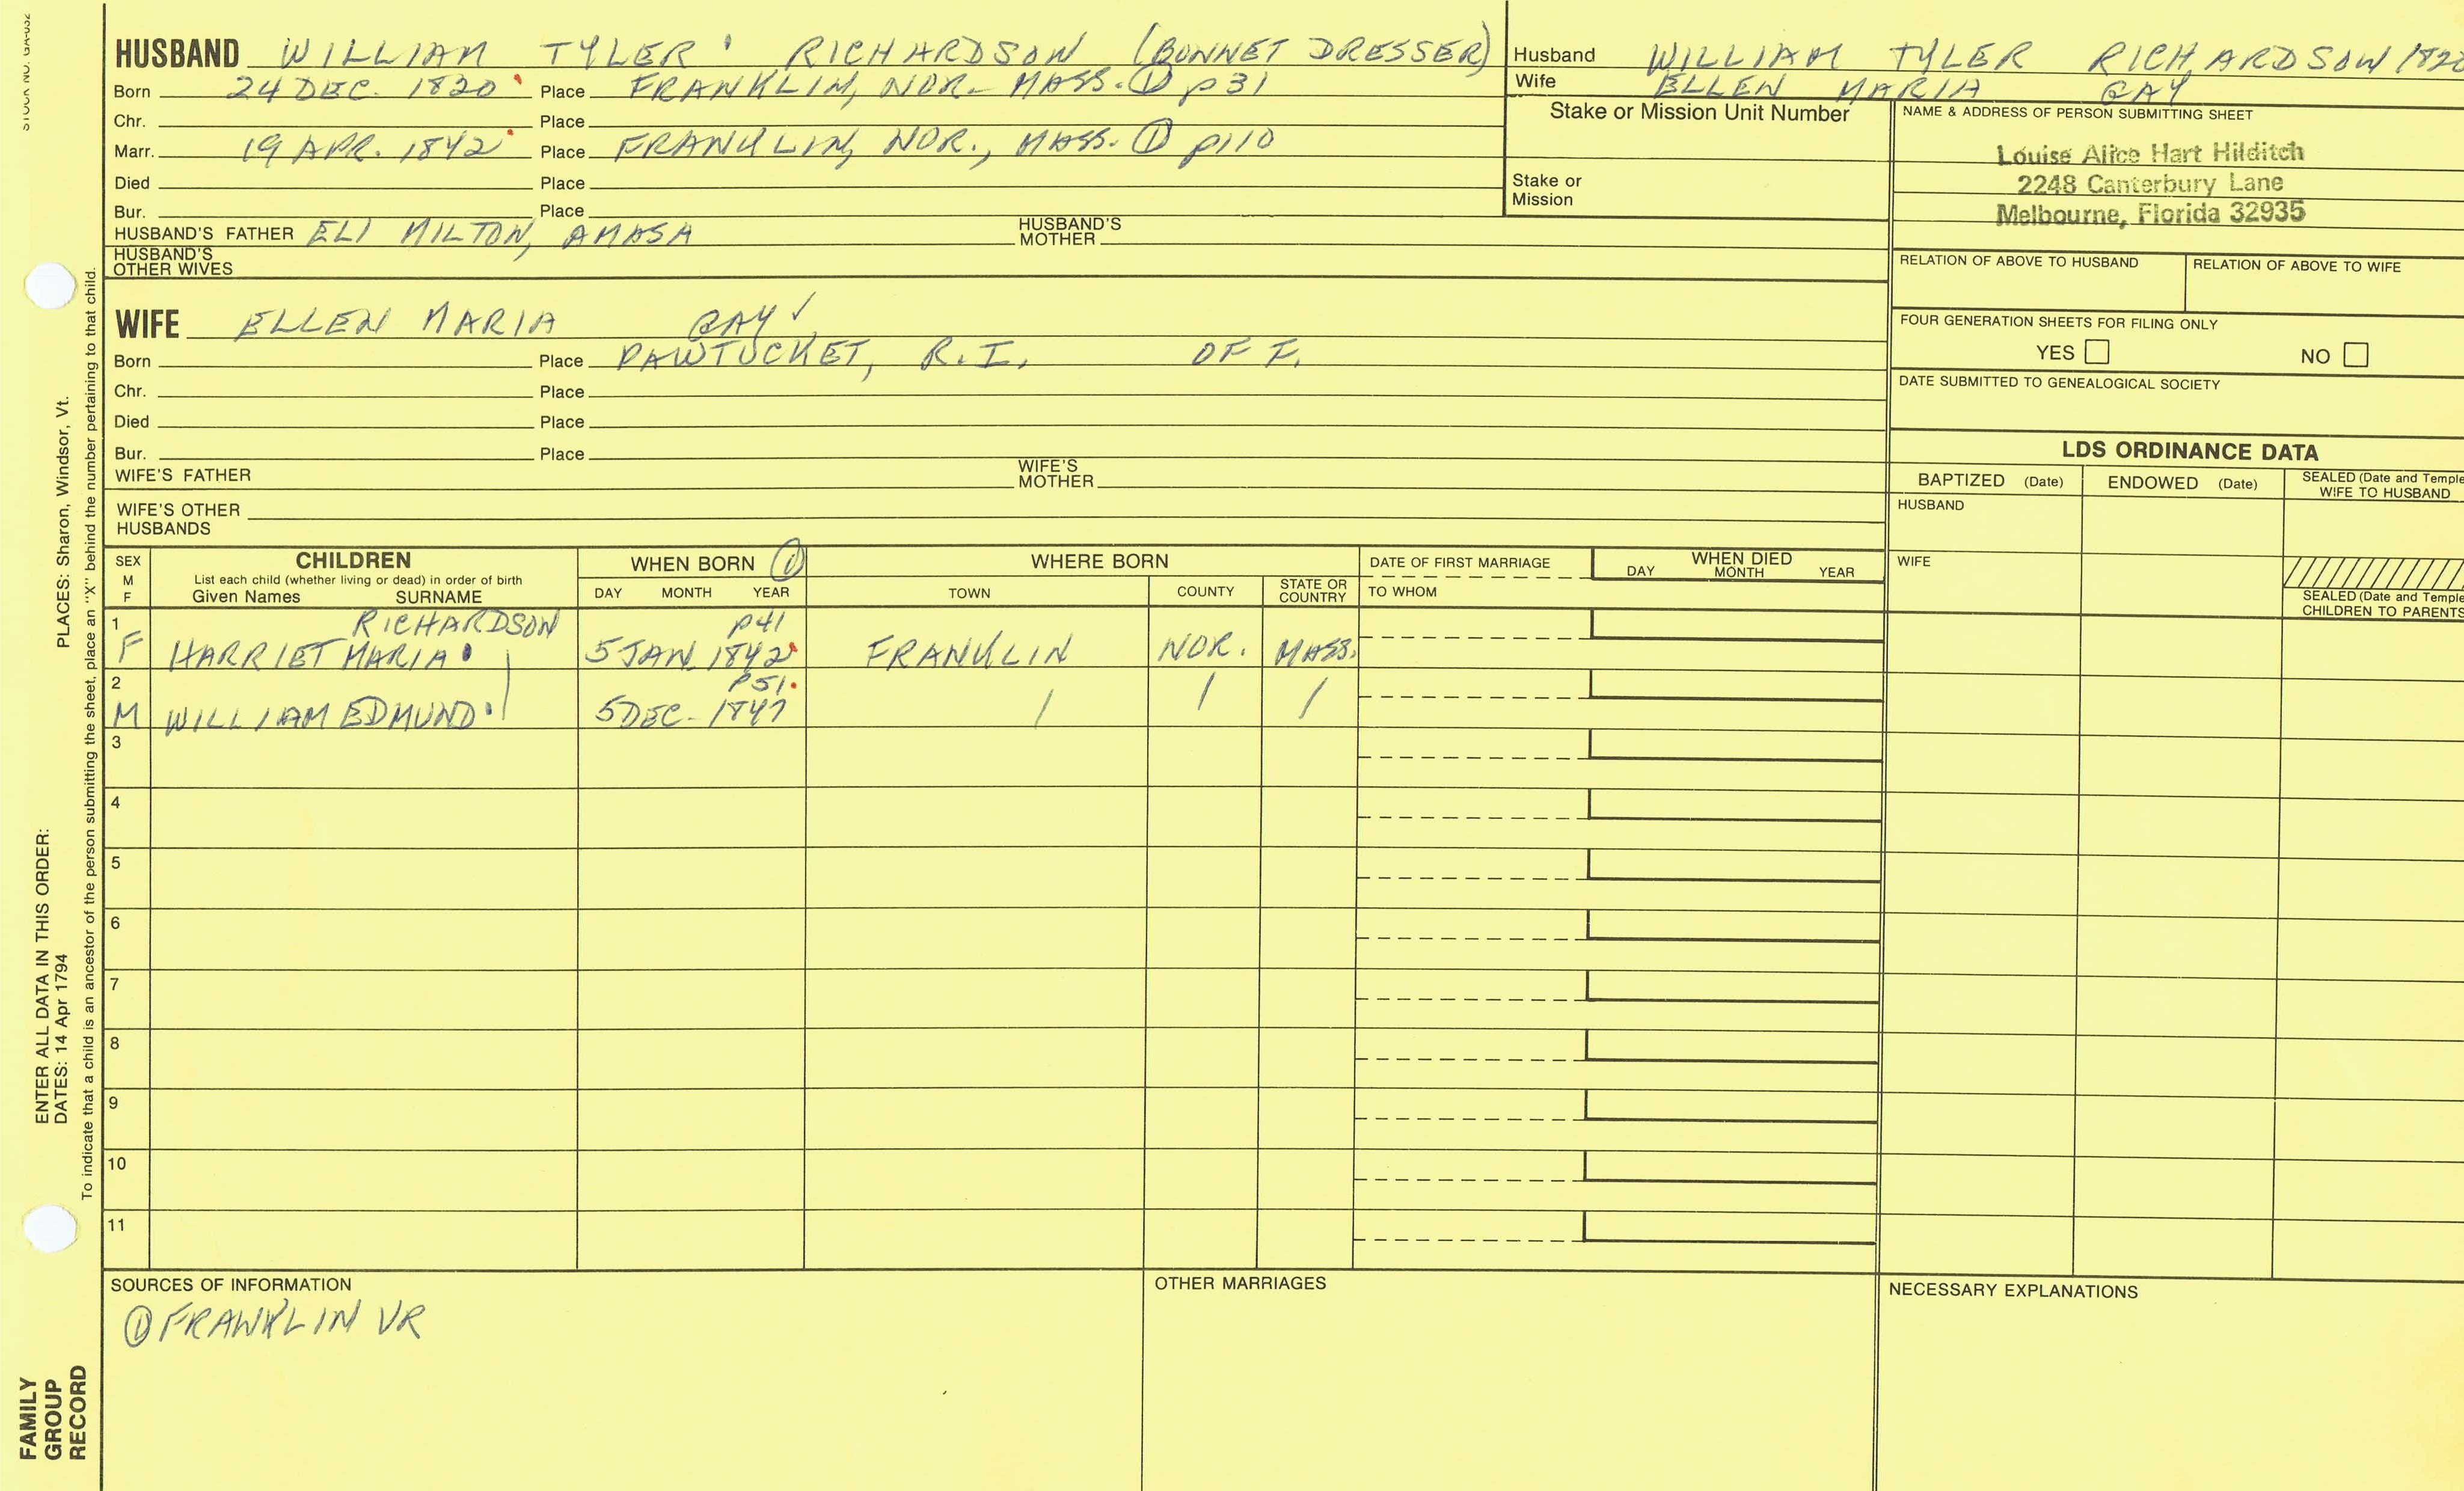 STOCK NO. GA-032
HUSBAND WILLIAM TYLER RICHARDSON (BONNET DRESSER)
Born 24 DEC. 1820 Place FRANKLIN, NOR. MASS. ① p31
Chr. Place
Marr. 19 APR. 1842 Place FRANKLIN, NOR., MASS. ① p110
Died Place
Bur. Place
HUSBAND'S FATHER ELI MILTON, AMASA HUSBAND'S MOTHER
HUSBAND'S OTHER WIVES
Husband WILLIAM TYLER RICHARDSON
Wife ELLEN MARIA GAY
Stake or Mission Unit Number
Stake or
Mission
NAME & ADDRESS OF PERSON SUBMITTING SHEET
Louise Alice Hart Hilditch
2248 Canterbury Lane
Melbourne, Florida 32935
RELATION OF ABOVE TO HUSBAND RELATION OF ABOVE TO WIFE
FOUR GENERATION SHEETS FOR FILING ONLY
YES NO
DATE SUBMITTED TO GENEALOGICAL SOCIETY
WIFE ELLEN MARIA GAY ✓
Born Place PAWTUCKET, R.I. OF F.
Chr. Place
Died Place
Bur. Place
WIFE'S FATHER WIFE'S MOTHER
WIFE'S OTHER
HUSBANDS
LDS ORDINANCE DATA
BAPTIZED (Date) ENDOWED (Date) SEALED (Date and Temple
WIFE TO HUSBAND
HUSBAND
WIFE
SEALED (Date and Temple
CHILDREN TO PARENTS
SEX
M
F
CHILDREN
List each child (whether living or dead) in order of birth
Given Names SURNAME
WHEN BORN ①
DAY MONTH YEAR
WHERE BORN
TOWN COUNTY STATE OR COUNTRY
DATE OF FIRST MARRIAGE
TO WHOM
WHEN DIED
DAY MONTH YEAR
1 RICHARDSON p41
F HARRIET MARIA 5 JAN. 1842 FRANKLIN NOR. MASS.
2 P51
M WILLIAM EDMUND 5 DEC. 1847 / / /
3
4
5
6
7
8
9
10
11
SOURCES OF INFORMATION
① FRANKLIN VR
OTHER MARRIAGES
NECESSARY EXPLANATIONS
ENTER ALL DATA IN THIS ORDER:
DATES: 14 Apr 1794 PLACES: Sharon, Windsor, Vt.
To indicate that a child is an ancestor of the person submitting the sheet, place an "X" behind the number pertaining to that child.
FAMILY
GROUP
RECORD